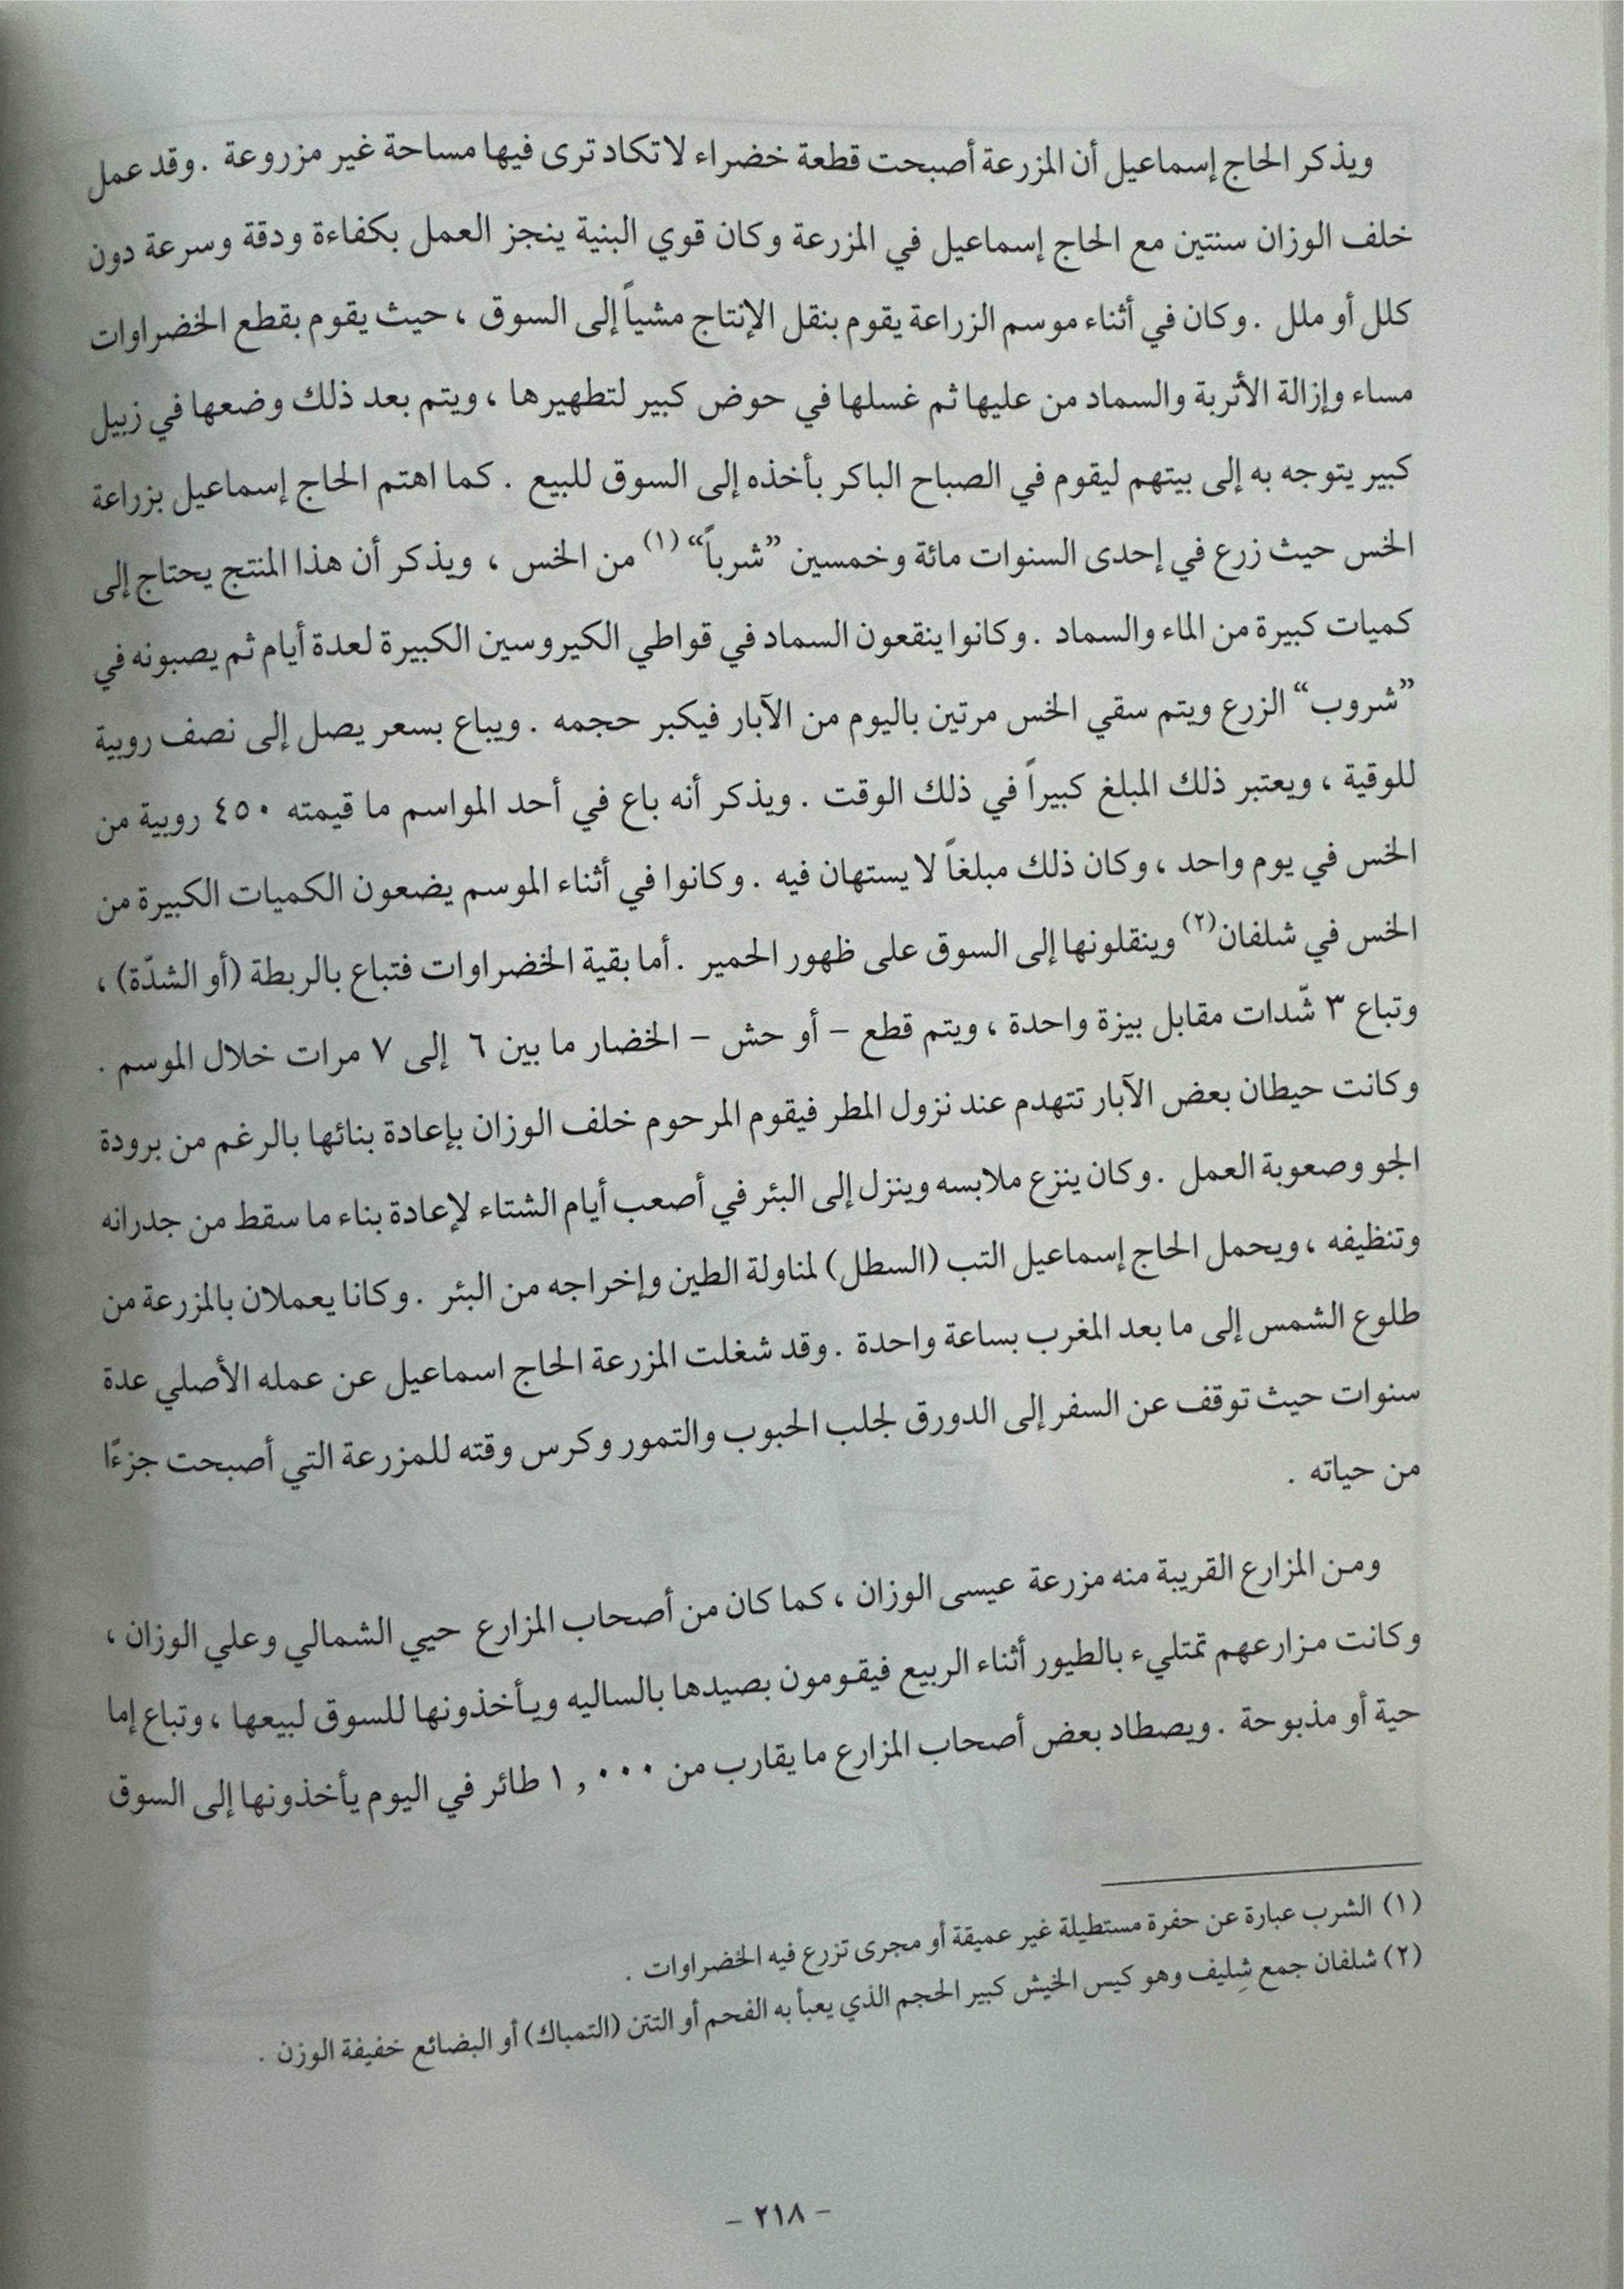 ويذكر الحاج إسماعيل أن المزرعة أصبحت قطعة خضراء لا تكاد ترى فيها مساحة غير مزروعة . وقد عمل
خلف الوزان سنتين مع الحاج إسماعيل في المزرعة وكان قوي البنية ينجز العمل بكفاءة ودقة وسرعة دون
كلل أو ملل . وكان في أثناء موسم الزراعة يقوم بنقل الإنتاج مشياً إلى السوق ، حيث يقوم بقطع الخضراوات
مساء وإزالة الأتربة والسماد من عليها ثم غسلها في حوض كبير لتطهيرها ، ويتم بعد ذلك وضعها في زبيل
كبير يتوجه به إلى بيتهم ليقوم في الصباح الباكر بأخذه إلى السوق للبيع . كما اهتم الحاج إسماعيل بزراعة
الخس حيث زرع في إحدى السنوات مائة وخمسين ”شرباً“ (١) من الخس ، ويذكر أن هذا المنتج يحتاج إلى
كميات كبيرة من الماء والسماد . وكانوا ينقعون السماد في قواطي الكيروسين الكبيرة لعدة أيام ثم يصبونه في
”شروب“ الزرع ويتم سقي الخس مرتين باليوم من الآبار فيكبر حجمه . ويباع بسعر يصل إلى نصف روبية
للوقية ، ويعتبر ذلك المبلغ كبيراً في ذلك الوقت . ويذكر أنه باع في أحد المواسم ما قيمته ٤٥٠ روبية من
الخس في يوم واحد ، وكان ذلك مبلغاً لا يستهان فيه . وكانوا في أثناء الموسم يضعون الكميات الكبيرة من
الخس في شلفان(٢) وينقلونها إلى السوق على ظهور الحمير . أما بقية الخضراوات فتباع بالربطة (أو الشدّة) ،
وتباع ٣ شّدات مقابل بيزة واحدة ، ويتم قطع – أو حش – الخضار ما بين ٦ إلى ٧ مرات خلال الموسم .
وكانت حيطان بعض الآبار تتهدم عند نزول المطر فيقوم المرحوم خلف الوزان بإعادة بنائها بالرغم من برودة
الجو وصعوبة العمل . وكان ينزع ملابسه وينزل إلى البئر في أصعب أيام الشتاء لإعادة بناء ما سقط من جدرانه
وتنظيفه ، ويحمل الحاج إسماعيل التب (السطل) لمناولة الطين وإخراجه من البئر . وكانا يعملان بالمزرعة من
طلوع الشمس إلى ما بعد المغرب بساعة واحدة . وقد شغلت المزرعة الحاج اسماعيل عن عمله الأصلي عدة
سنوات حيث توقف عن السفر إلى الدورق لجلب الحبوب والتمور وكرس وقته للمزرعة التي أصبحت جزءًا
من حياته .
ومن المزارع القريبة منه مزرعة عيسى الوزان ، كما كان من أصحاب المزارع حيي الشمالي وعلي الوزان ،
وكانت مزارعهم تمتليء بالطيور أثناء الربيع فيقومون بصيدها بالساليه ويأخذونها للسوق لبيعها ، وتباع إما
حية أو مذبوحة . ويصطاد بعض أصحاب المزارع ما يقارب من ١,٠٠٠ طائر في اليوم يأخذونها إلى السوق
(١) الشرب عبارة عن حفرة مستطيلة غير عميقة أو مجرى تزرع فيه الخضراوات .
(٢) شلفان جمع شِليف وهو كيس الخيش كبير الحجم الذي يعبأ به الفحم أو التتن (التمباك) أو البضائع خفيفة الوزن .
– ٢١٨ –